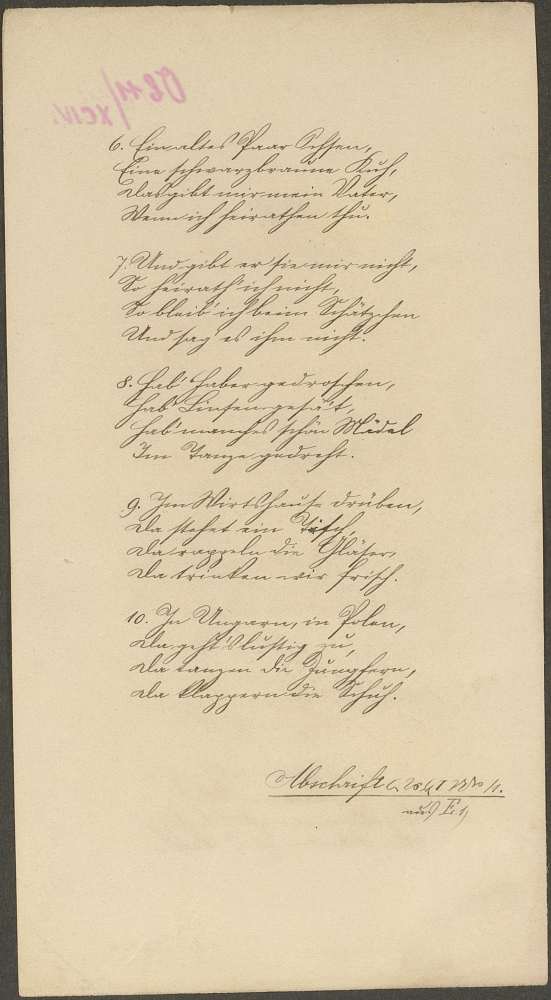 6. Ein altes Paar Ochsen,
Eine schwarzbraune Kuh,
Das gibt mir mein Vater,
Wenn ich heirathen thu.
7. Und gibt er sie mir nicht,
So heirath' ich nicht,
So bleib' ich beim Schätzchen
Und sag' es ihm nicht.
8. Hab' Haber gedroschen,
Hab' Linsen gesä't,
Hab' manches schön Mädel
Im Tanze gedreht.
9. Im Wirtshause drüben,
Da stehet ein Tisch,
Da rappeln die Gläser,
Da trinken wir frisch.
10. In Ungarn, in Polen,
Da geht's lustig zu,
Da tanzen die Jungfern,
Da klappern die Schuh.
Abschrift